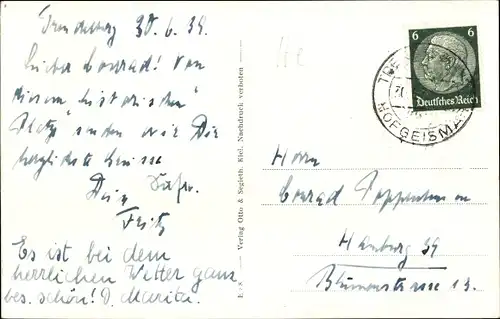 Trendelburg 30.6.39.
Lieber Conrad! Von
diesem "historischen"
Platz senden wir Dir
herzlichste Grüsse
Dein
Fritz
Es ist bei dem
herrlichen Wetter ganz
bes. schön! D. Marita.
Verlag Otto & Segleth, Kiel. Nachdruck verboten
6 6
Deutsches Reich
HOFGEISMAR
Herrn
Conrad
Hamburg 39
Blumenstrasse 13.